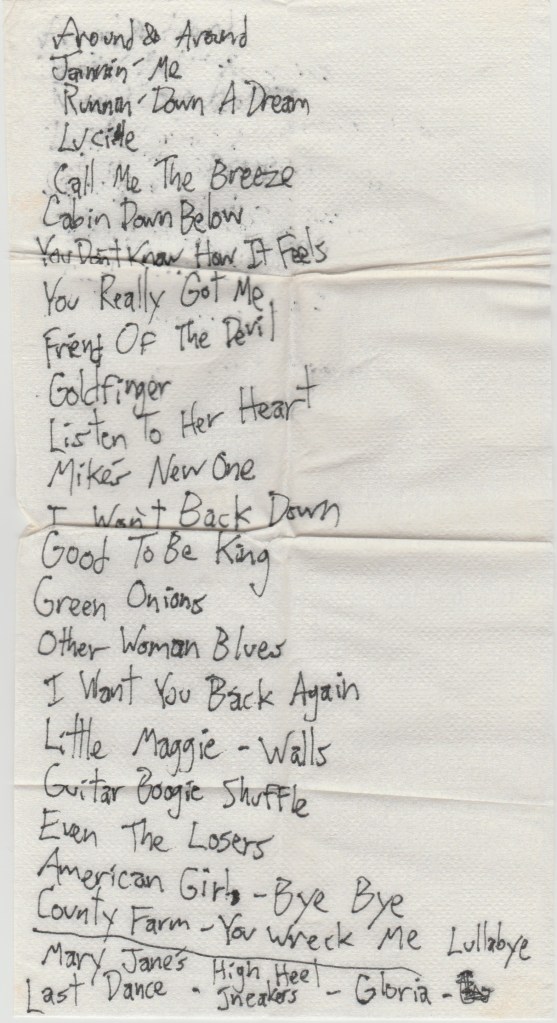 Around & Around
Jammin' Me
Runnin' Down A Dream
Lucille
Call Me The Breeze
Cabin Down Below
You Don't Know How It Feels
You Really Got Me
Friend Of The Devil
Goldfinger
Listen To Her Heart
Mike's New One
I Won't Back Down
Good To Be King
Green Onions
Other Woman Blues
I Want You Back Again
Little Maggie - Walls
Guitar Boogie Shuffle
Even The Losers
American Girl - Bye Bye
County Farm - You Wreck Me Lullabye
Mary Jane's High Heel
Last Dance - Sneakers - Gloria -